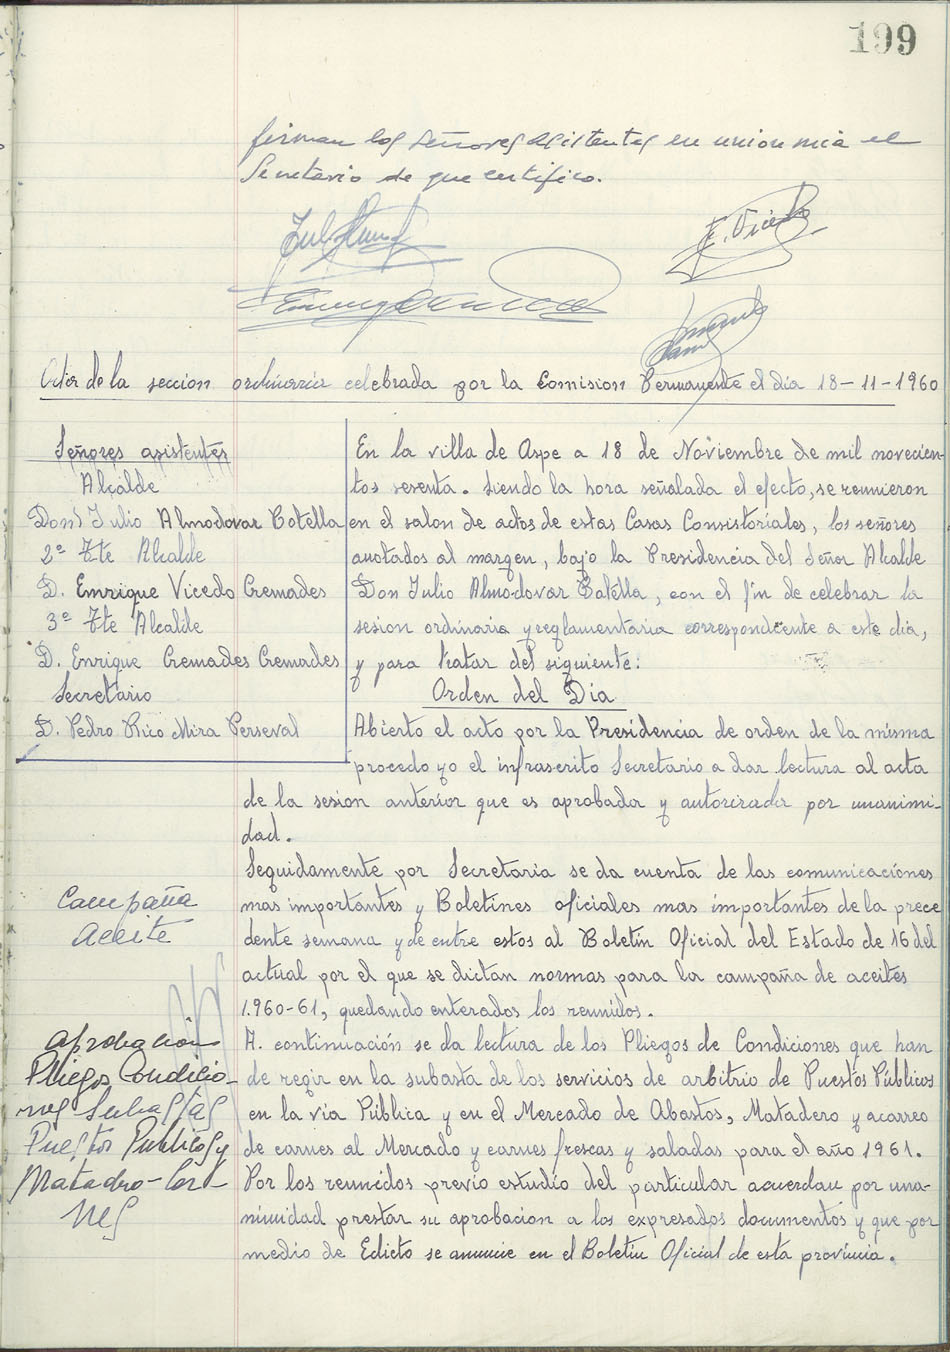 199
firman los señores asistentes en union mia el
Secretario de que certifico.
E. Vicedo
Acta de la seccion ordinaria celebrada por la Comision Permanente el dia 18-11-1960
Señores asistentes
Alcalde
Don Julio Almodovar Botella
2º Tte Alcalde
D. Enrique Vicedo Cremades
3º Tte Alcalde
D. Enrique Cremades Cremades
Secretario
D. Pedro Rico Mira Perseval
En la villa de Aspe a 18 de Noviembre de mil novecien-
tos sesenta. Siendo la hora señalada el efecto, se reunieron
en el salon de actos de estas Casas Consistoriales, los señores
anotados al margen, bajo la Presidencia del Señor Alcalde
Don Julio Almodovar Botella, con el fin de celebrar la
sesion ordinaria y reglamentaria correspondiente a este dia,
y para tratar del siguiente:
Orden del Dia
Abierto el acto por la Presidencia de orden de la misma
procedo yo el infrascrito Secretario a dar lectura al acta
de la sesion anterior que es aprobada y autorizada por unanimi-
dad.
Campaña
aceite
Seguidamente por Secretaria se da cuenta de las comunicaciones
mas importantes y Boletines oficiales mas importantes de la prece
dente semana y de entre estos al Boletin Oficial del Estado de 16 del
actual por el que se dictan normas para la campaña de aceites
1.960-61, quedando enterados los reunidos.
aprobación
Pliegos Condicio-
nes Subastas
Puestos Publicos y
Matadero-Car-
nes
A. continuación se da lectura de los Pliegos de Condiciones que han
de regir en la subasta de los servicios de arbitrio de Puestos Públicos
en la via Pública y en el Mercado de Abastos, Matadero y acarreo
de carnes al Mercado y carnes frescas y saladas para el año 1961.
Por los reunidos previo estudio del particular acuerdan por una-
nimidad prestar su aprobacion a los expresados documentos y que por
medio de Edicto se anuncie en el Boletin Oficial de esta provincia.